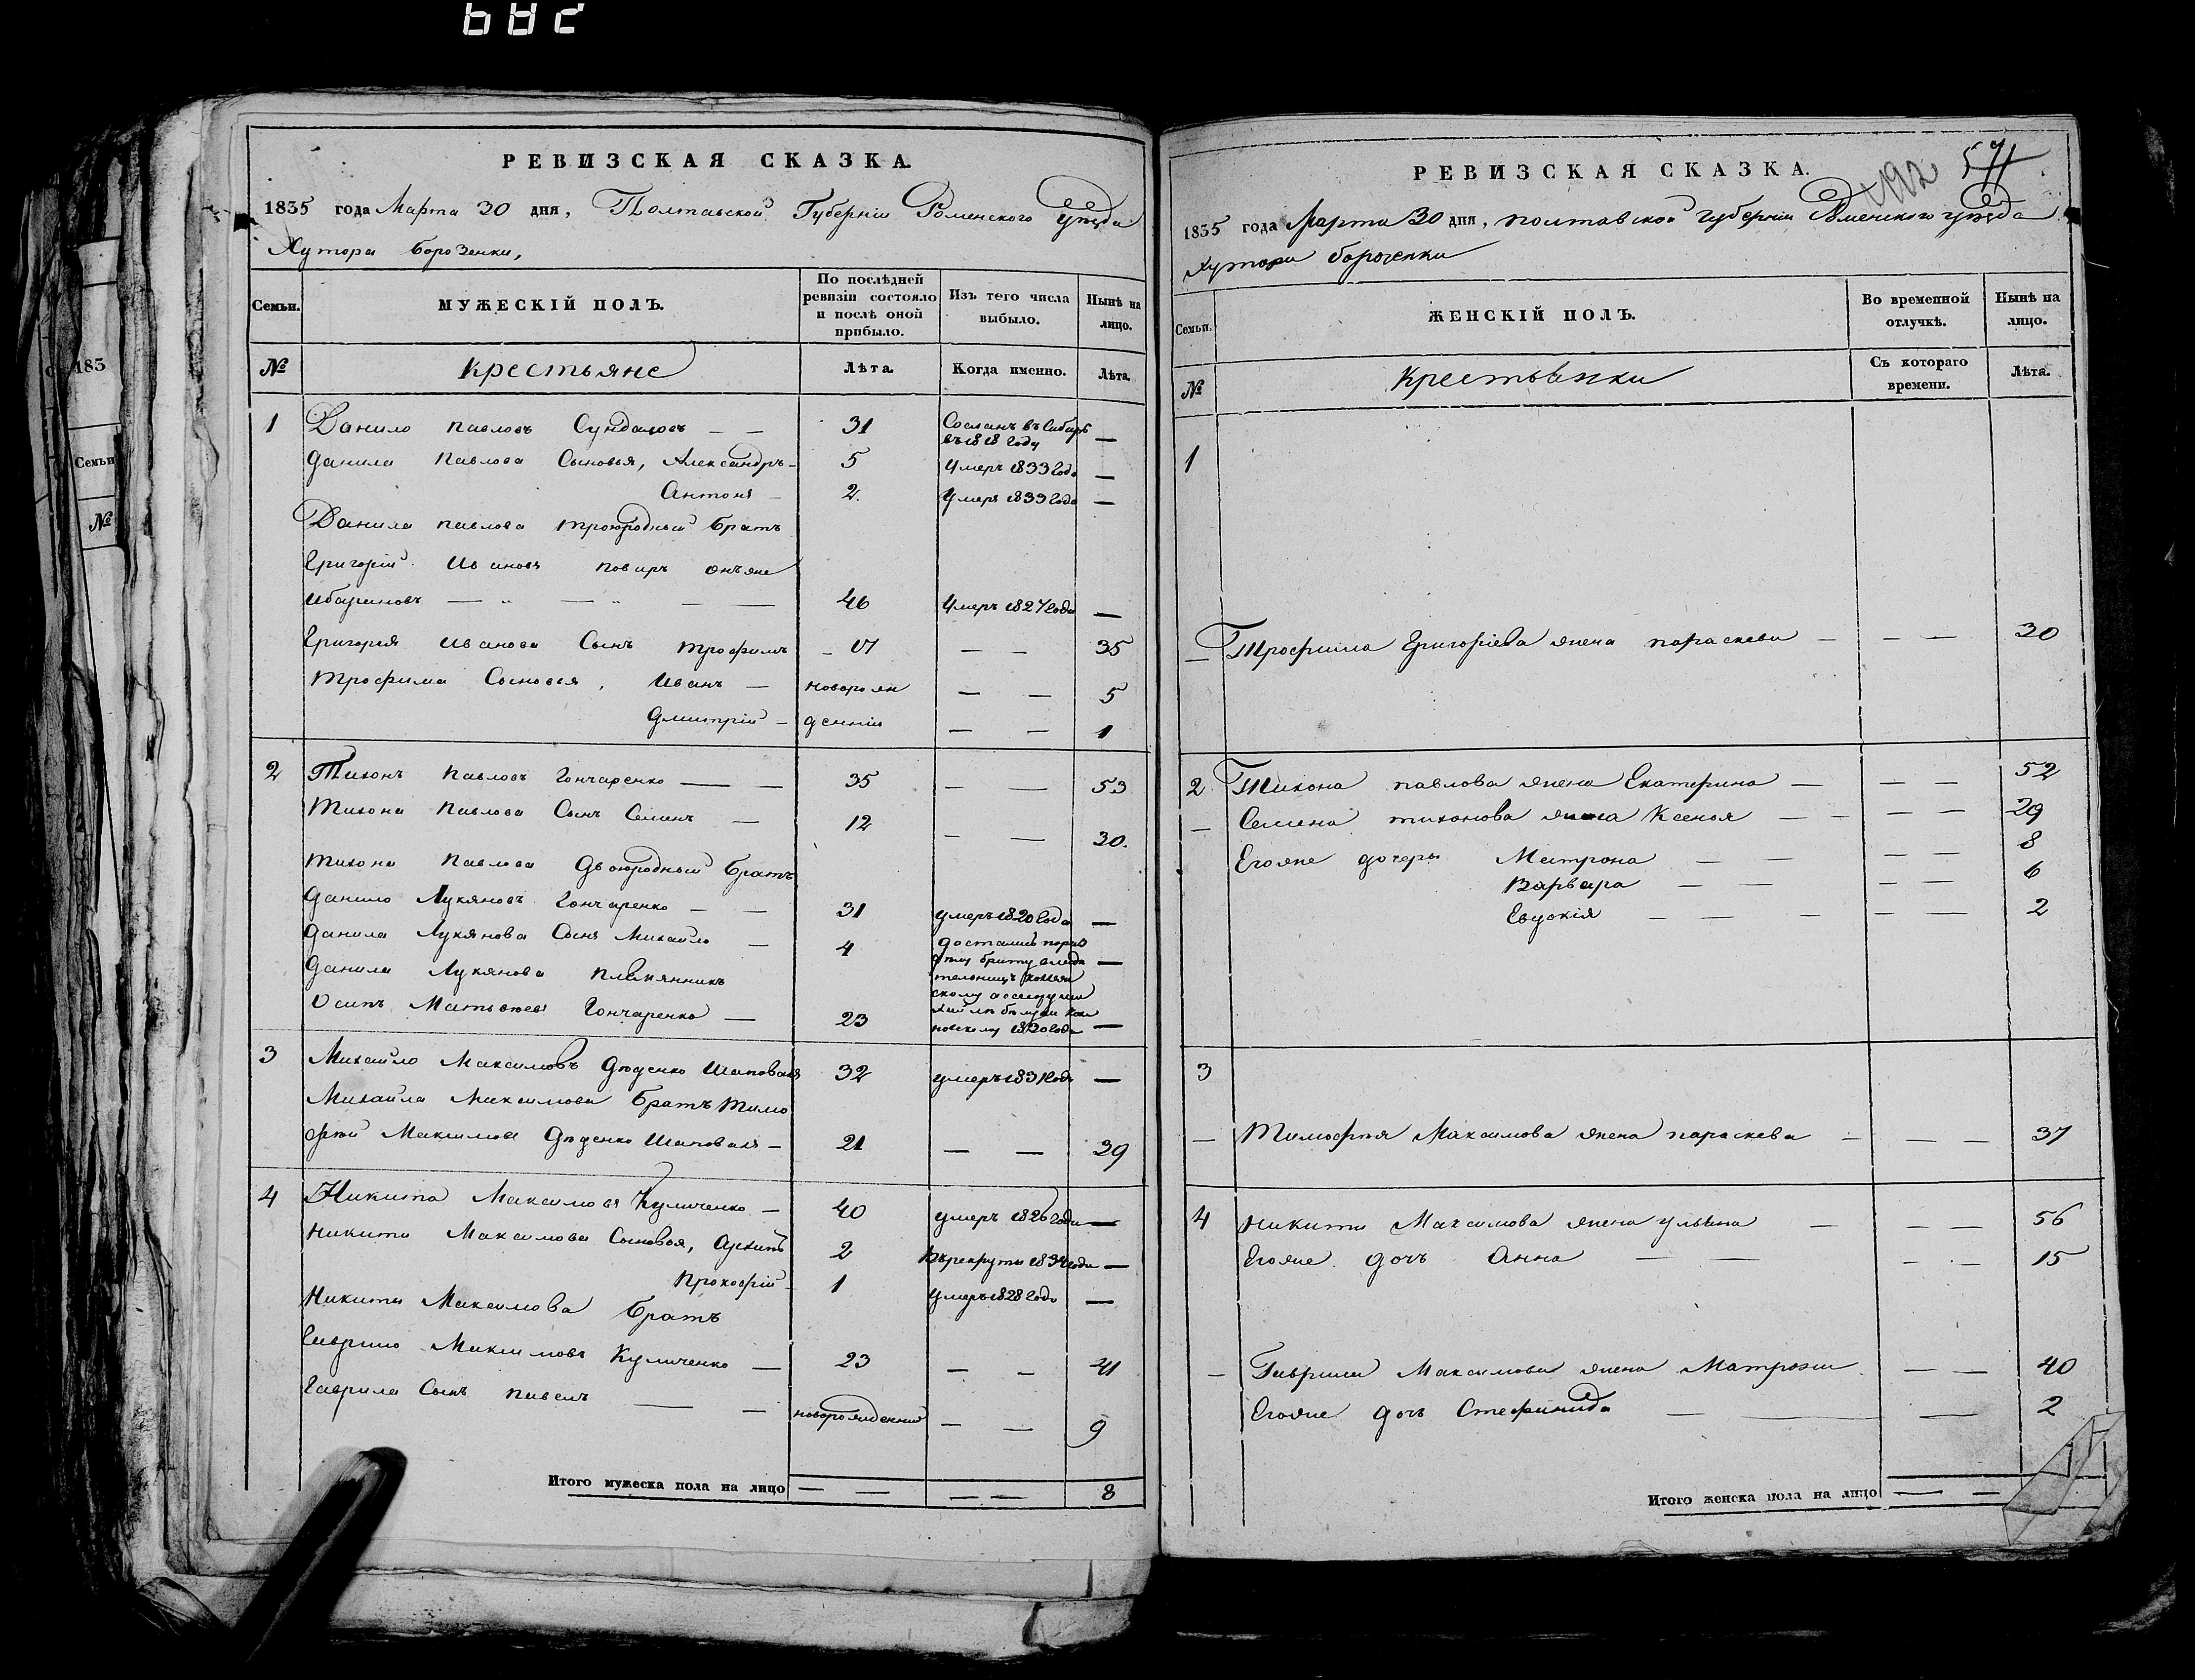 682
РЕВИЗСКАЯ СКАЗКА.
1835 года Марта 30 дня, Полтавской Губернiи Роменского уѣзда
Хутора Борозенки,
Семьи. МУЖЕСКIЙ ПОЛЪ. По послѣдней ревизiи состояло и послѣ оной прибыло. Изъ того числа выбыло. Нынѣ на лицо.
№ Крестьяне Лѣта. Когда именно. Лѣта.
1 Данило Павловъ — — 31 Сосланъ въ Сибирь въ 1818 году —
Данила Павлова Сыновья, Александръ — 5 Умеръ 1833 года —
Антонъ — 2. Умеръ 1833 года —
Данила Павлова троюродный братъ
Григорiй Ивановъ поваръ онъже
— „ — „ — — 46 Умеръ 1827 года —
Григорiя Иванова Сынъ трофимъ — 17 — — 35
трофима Сыновья, Иванъ — новорож — — 5
Дмитрiй — деннiи — — 1
2 Тихонъ Павловъ Гончаренко — — 35 — — 53
Тихона Павлова Сынъ Семенъ — 12 — — 30.
Тихона Павлова Двоюродный братъ
Данило Лукяновъ Гончаренко — — 31 умеръ 1820 года —
Данила Лукянова Сынъ Михайло — 4 достались —
Данила Лукянова племянникъ
Осипъ Матвѣевъ Гончаренко — 23 1820 года —
3 Михайло Максимовъ Дяденко Шаповалъ 32 умеръ 1831 года —
Михайла Максимова братъ Тимо
фѣй Максимовъ Дяденко Шаповалъ — 21 — — 39
4 Никита Максимовъ Куличенко — 40 умеръ 1826 года —
Никиты Максимова Сыновья, Архипъ 2 Врекруты 1834 года —
Прокофiй 1 Умеръ 1828 года —
Никиты Максимова братъ
Гаврило Максимовъ Куличенко — 23 — — 41
Гаврила Сынъ павелъ — — новорожденный — — 9
Итого мужеска пола на лицо — — — — 8
192 571
РЕВИЗСКАЯ СКАЗКА.
1835 года Марта 30 дня, полтавской губернiи Роменского уѣзда
Хутора борозенки
Семьи. ЖЕНСКIЙ ПОЛЪ. Во временной отлучкѣ. Нынѣ на лицо.
№ Крестьянки Съ котораго времени. Лѣта.
1
— Трофима Григорiева жена параскева — — — 30
2 Тихона павлова жена Екатерина — — — 52
— Семена тихонова жена Ксенья — — — — 29
Егоже дочеры Матрона — — — — 8
Варвара — — — — 6
Евдокiя — — — — — 2
3
— Тимофѣя Максимова жена параскева — — — 37
4 Никиты Максимова жена ульяна — — — 56
Егоже дочъ Анна — — — — 15
— Гаврила Максимова жена Матрона — — 40
Егоже дочъ Стефанида — — — 2
Итого женска пола на лицо — —
183
Семьи
№